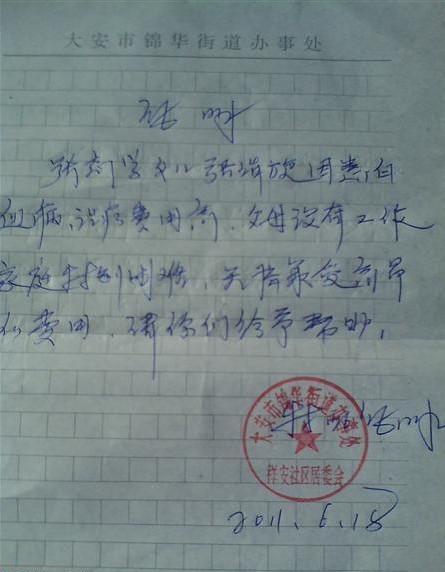 大安市锦华街道办事处
证明
女儿张瑞旋因患白
血病,治疗费用高,父母没有工作
家庭特别困难,无
费用,请你们给予帮助,
特此证明
大安市锦华街道办事处
祥安社区居委会
2011.5.18